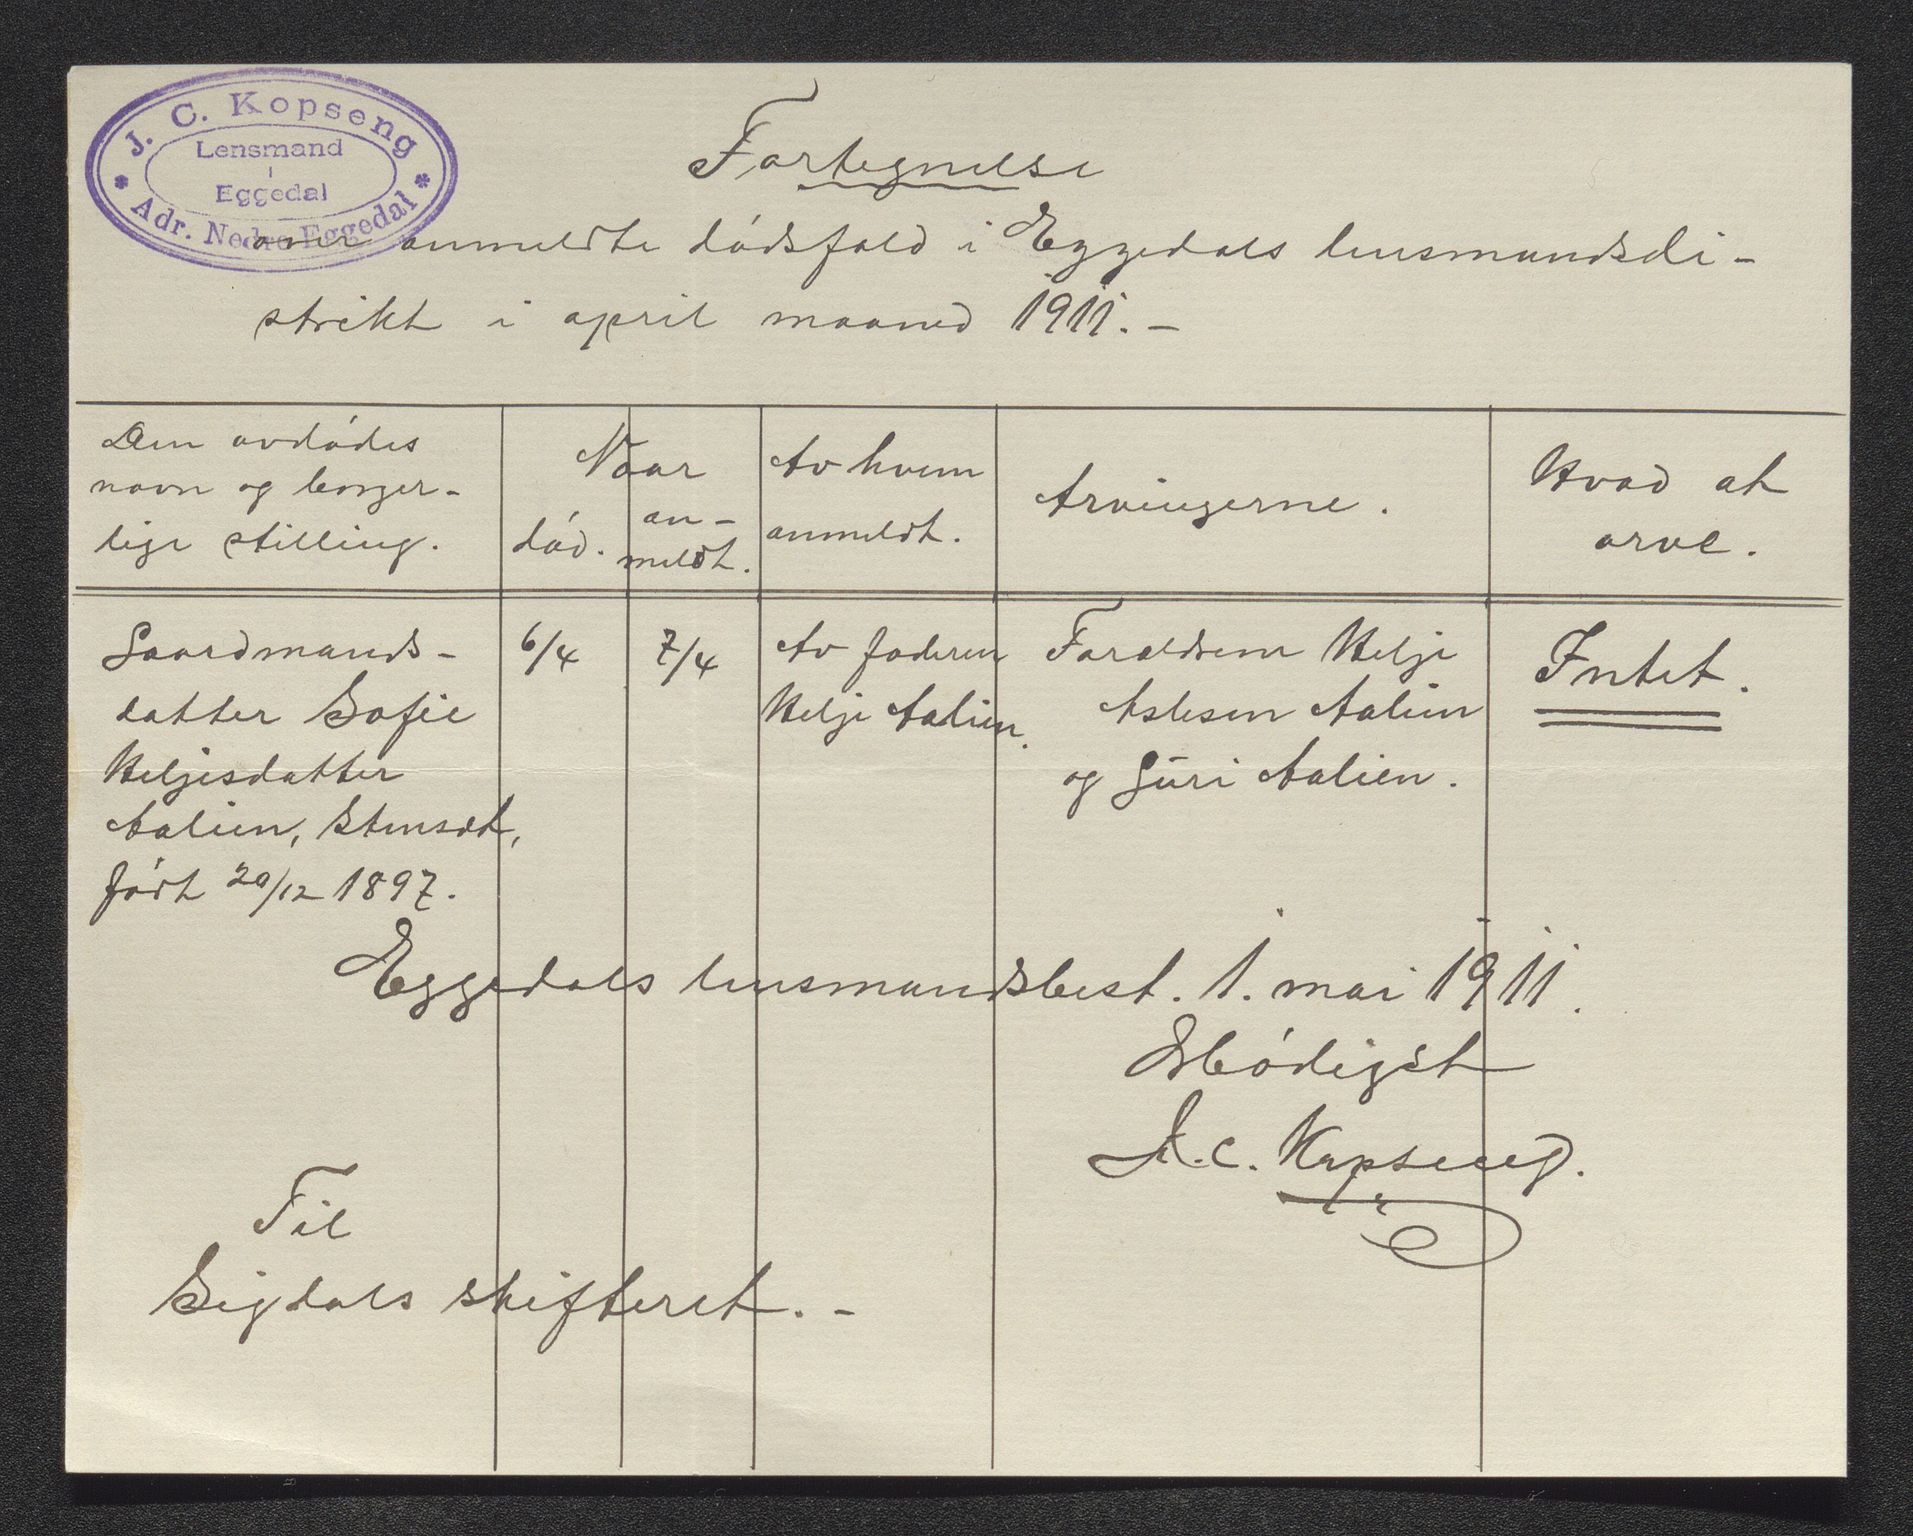 J. C. Kopseng
Lensmand
i
Eggedal
Adr. Nedre Eggedal
Fortegnelse
over anmeldte dódsfald i Eggedals lensmandsdi-
strikt i april maaned 1911. -
Den avdódes
navn og borger-
lige stilling.
Naar
dód.
an-
meldt.
Av hvem
anmeldt.
Arvingerne.
Hvad at
arve.
Gaardmands-
datter Sofie
Heljesdatter
Aalien,
fódt 20/12 1897.
6/4
7/4
Av faderen
Helje Aalien.
Foraldrene Helje
Aslesen Aalien
og Guri Aalien.
Intet.
Eggedals lensmandsbest. 1. mai 1911.
Ærbódigst
J. C. Kopseng.
Til
Sigdals skifteret. -